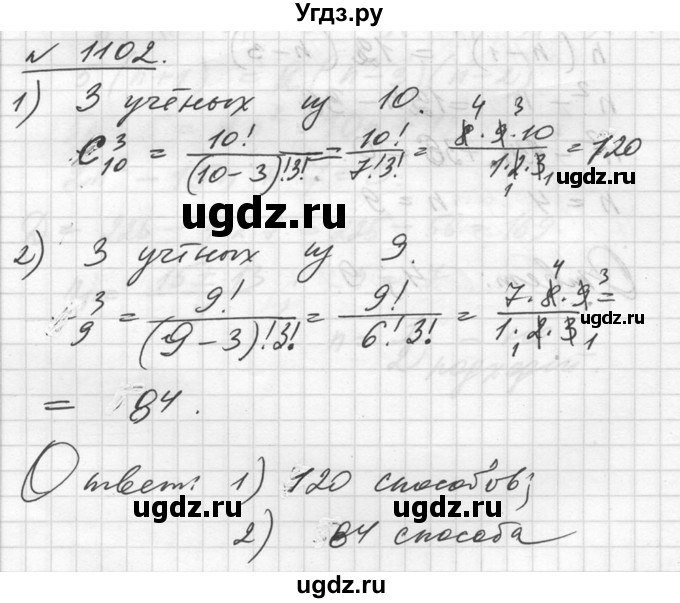 Угдз.ру
№ 1102.
1) 3 учёных из 10.
C₁₀³ = 10! / (10-3)!3! = 10! / 7!3! = 8·9·10 / 1·2·3 = 120
ugdz.ru ugdz.ru
2) 3 учёных из 9.
₉³ = 9! / (9-3)!3! = 9! / 6!3! = 7·8·9 / 1·2·3 =
ugdz.ru
= 84.
Ответ: 1) 120 способов;
ugdz.ru ugdz.ru
2) 84 способа
ugdz.ru